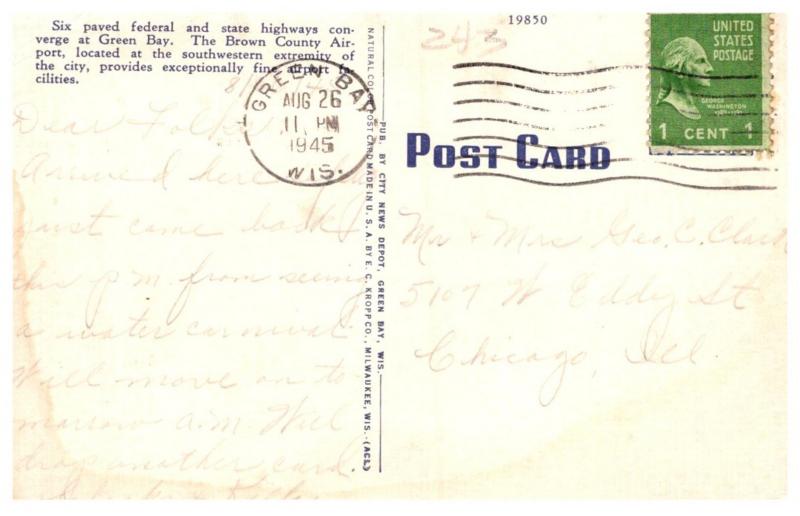 Six paved federal and state highways con-
verge at Green Bay. The Brown County Air-
port, located at the southwestern extremity of
the city, provides exceptionally fine airport fa-
cilities.
19850
243
UNITED
STATES
POSTAGE
GEORGE
WASHINGTON
1 CENT 1
GREEN BAY
AUG 26
11 PM
1945
WIS.
POST CARD
NATURAL COLOR POST CARD MADE IN U. S. A. BY E. C. KROPP CO., MILWAUKEE, WIS.-(ACL)
PUB. BY CITY NEWS DEPOT, GREEN BAY, WIS.
Dear Folks
Arrived here
just came back
this p m. from seeing
a water carnival.
Will move on to
morrow a.m. Will
drop another card.
Mr + Mrs Geo. C. Clark
5107 W Eddy St
Chicago, Ill.